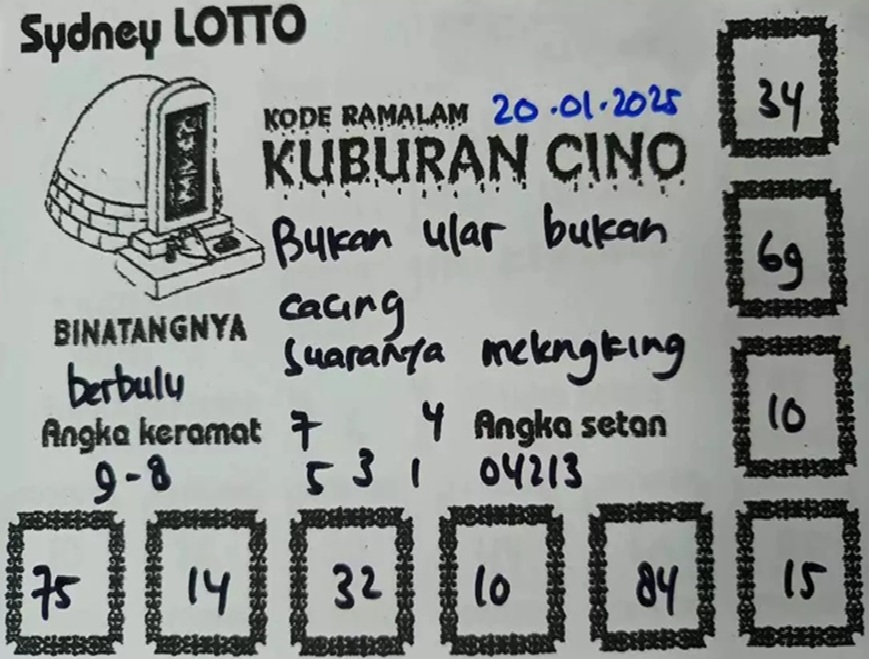 Sydney LOTTO
KODE RAMALAM 20.01.2025
KUBURAN CINO
34
Bukan ular bukan
cacing
69
Suaranya melengking
BINATANGNYA
berbulu
10
Angka keramat 7 4 Angka setan
9-8 5 3 1 04213
75 14 32 10 84 15